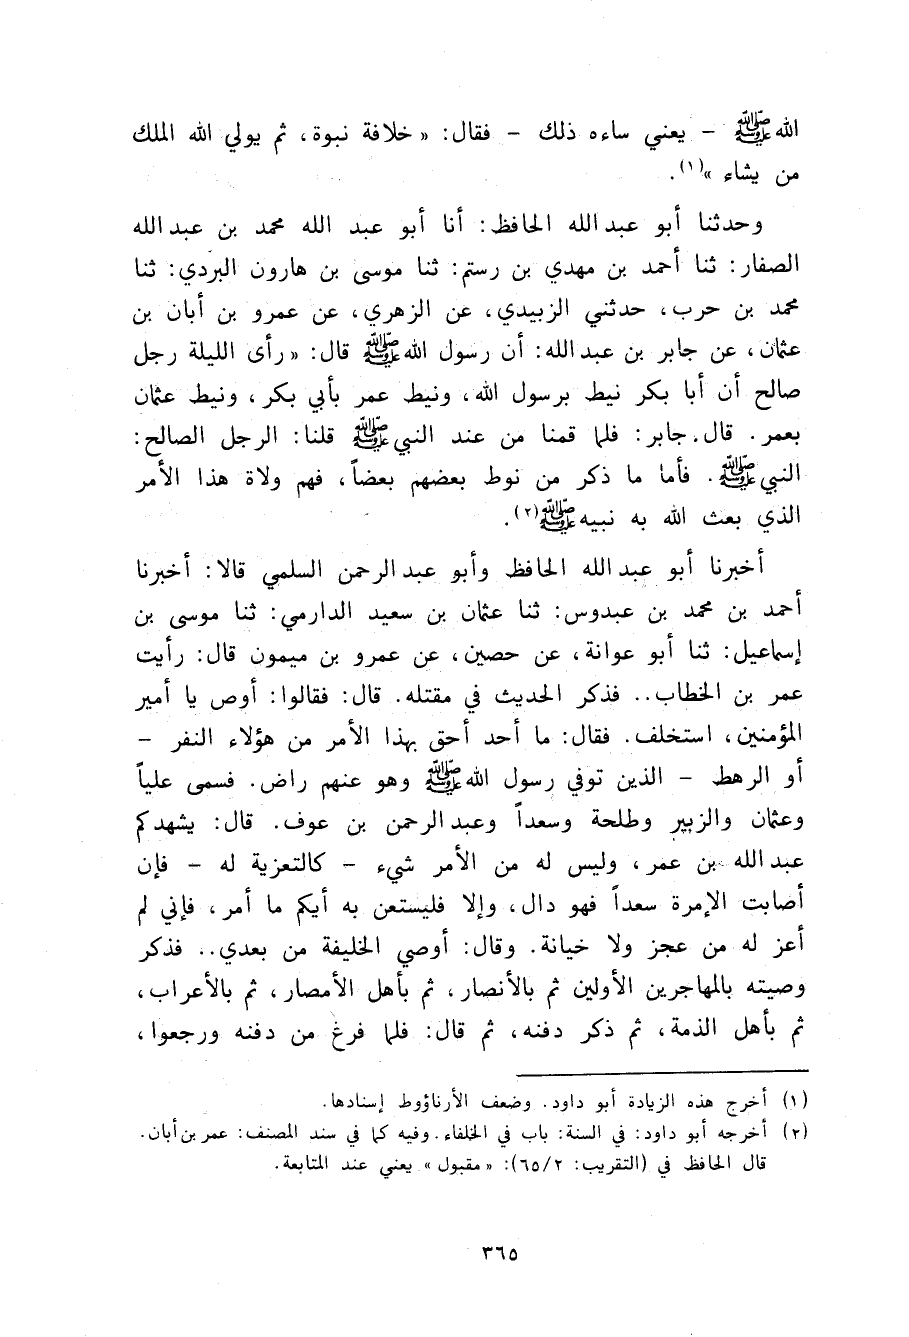 الله ﷺ – يعني ساءه ذلك – فقال: « خلافة نبوة، ثم يولي الله الملك
من يشاء »(١).
وحدثنا أبو عبد الله الحافظ: أنا أبو عبد الله محمد بن عبد الله
الصفار: ثنا أحمد بن مهدي بن رستم: ثنا موسى بن هارون البردي: ثنا
محمد بن حرب، حدثني الزبيدي، عن الزهري، عن عمرو بن أبان بن
عثمان، عن جابر بن عبد الله: أن رسول الله ﷺ قال: « رأى الليلة رجل
صالح أن أبا بكر نيط برسول الله، ونيط عمر بأبي بكر، ونيط عثمان
بعمر. قال جابر: فلما قمنا من عند النبي ﷺ قلنا: الرجل الصالح:
النبي ﷺ. فأما ما ذكر من نوط بعضهم بعضاً، فهم ولاة هذا الأمر
الذي بعث الله به نبيه ﷺ(٢).
أخبرنا أبو عبد الله الحافظ وأبو عبد الرحمن السلمي قالا: أخبرنا
أحمد بن محمد بن عبدوس: ثنا عثمان بن سعيد الدارمي: ثنا موسى بن
إسماعيل: ثنا أبو عوانة، عن حصين، عن عمرو بن ميمون قال: رأيت
عمر بن الخطاب.. فذكر الحديث في مقتله. قال: فقالوا: أوص يا أمير
المؤمنين، استخلف. فقال: ما أحد أحق بهذا الأمر من هؤلاء النفر –
أو الرهط – الذين توفي رسول الله ﷺ وهو عنهم راض. فسمى علياً
وعثمان والزبير وطلحة وسعداً وعبد الرحمن بن عوف. قال: يشهدكم
عبد الله بن عمر، وليس له من الأمر شيء – كالتعزية له – فإن
أصابت الإمرة سعداً فهو دال، وإلا فليستعن به أيكم ما أمر، فإني لم
أعز له من عجز ولا خيانة. وقال: أوصي الخليفة من بعدي.. فذكر
وصيته بالمهاجرين الأولين ثم بالأنصار، ثم بأهل الأمصار، ثم بالأعراب،
ثم بأهل الذمة، ثم ذكر دفنه، ثم قال: فلما فرغ من دفنه ورجعوا،
(١) أخرج هذه الزيادة أبو داود. وضعف الأرناؤوط إسنادها.
(٢) أخرجه أبو داود: في السنة: باب في الخلفاء. وفيه كما في سند المصنف: عمر بن أبان.
قال الحافظ في (التقريب: ٦٥/٢): « مقبول » يعني عند المتابعة.
٣٦٥